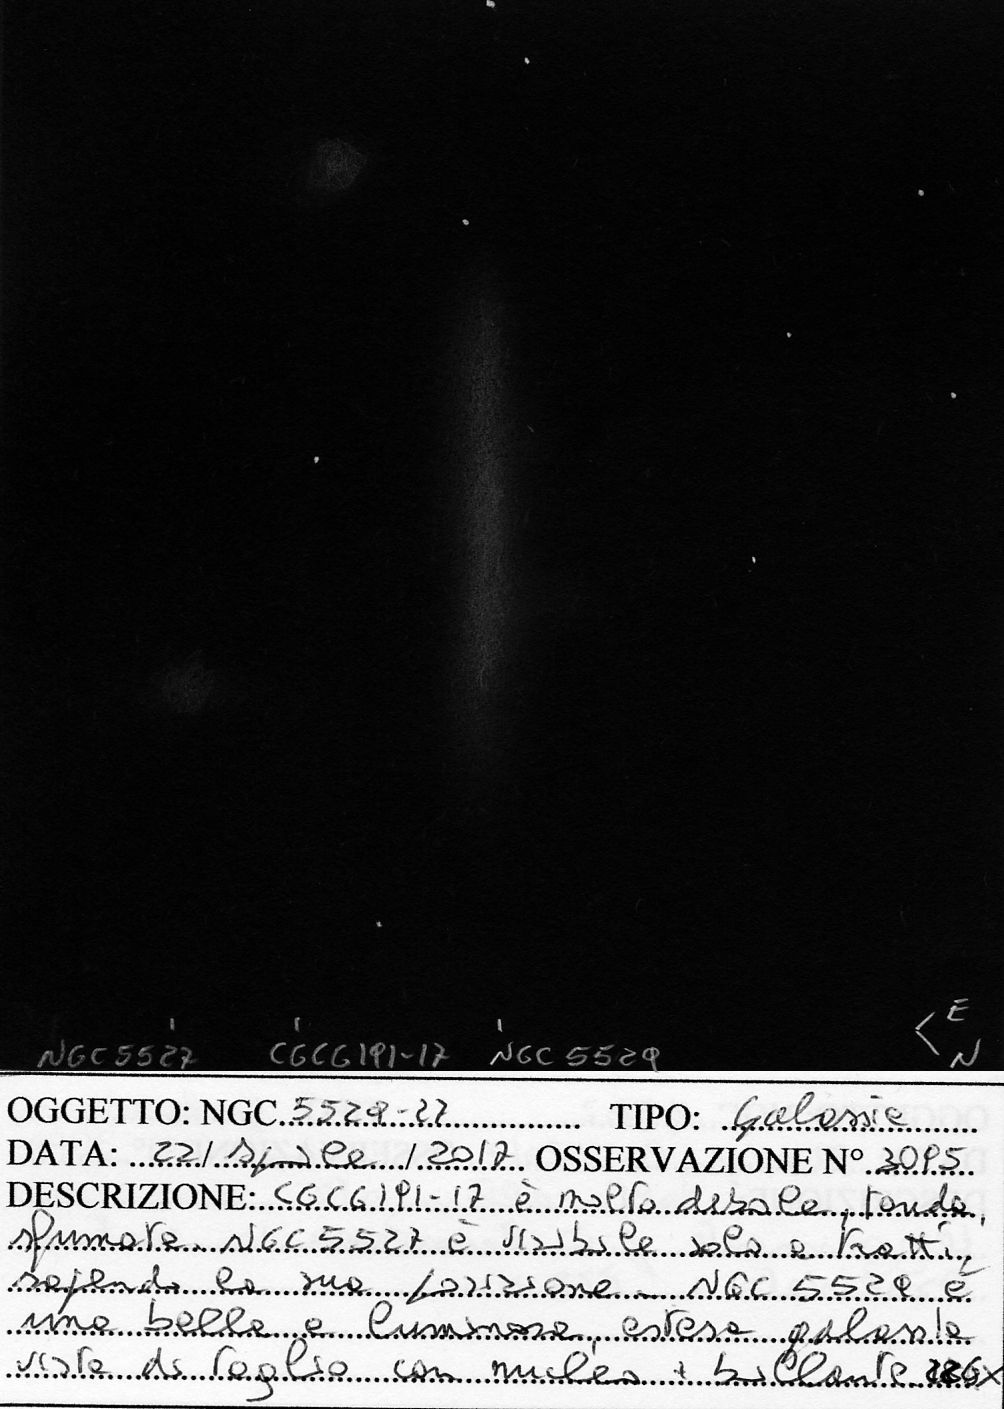 E
N
NGC 5527 CGCG 191-17 NGC 5529
OGGETTO: NGC 5529-27 TIPO: Galassie
DATA: 22/Aprile/2017 OSSERVAZIONE N° 3095
DESCRIZIONE: CGCG 191-17 è molto debole, tonda,
sfumata. NGC 5527 è visibile solo a tratti,
sapendo la sua posizione. NGC 5529 è
una bella e luminosa, estesa galassia
vista di taglio con nucleo + brillante